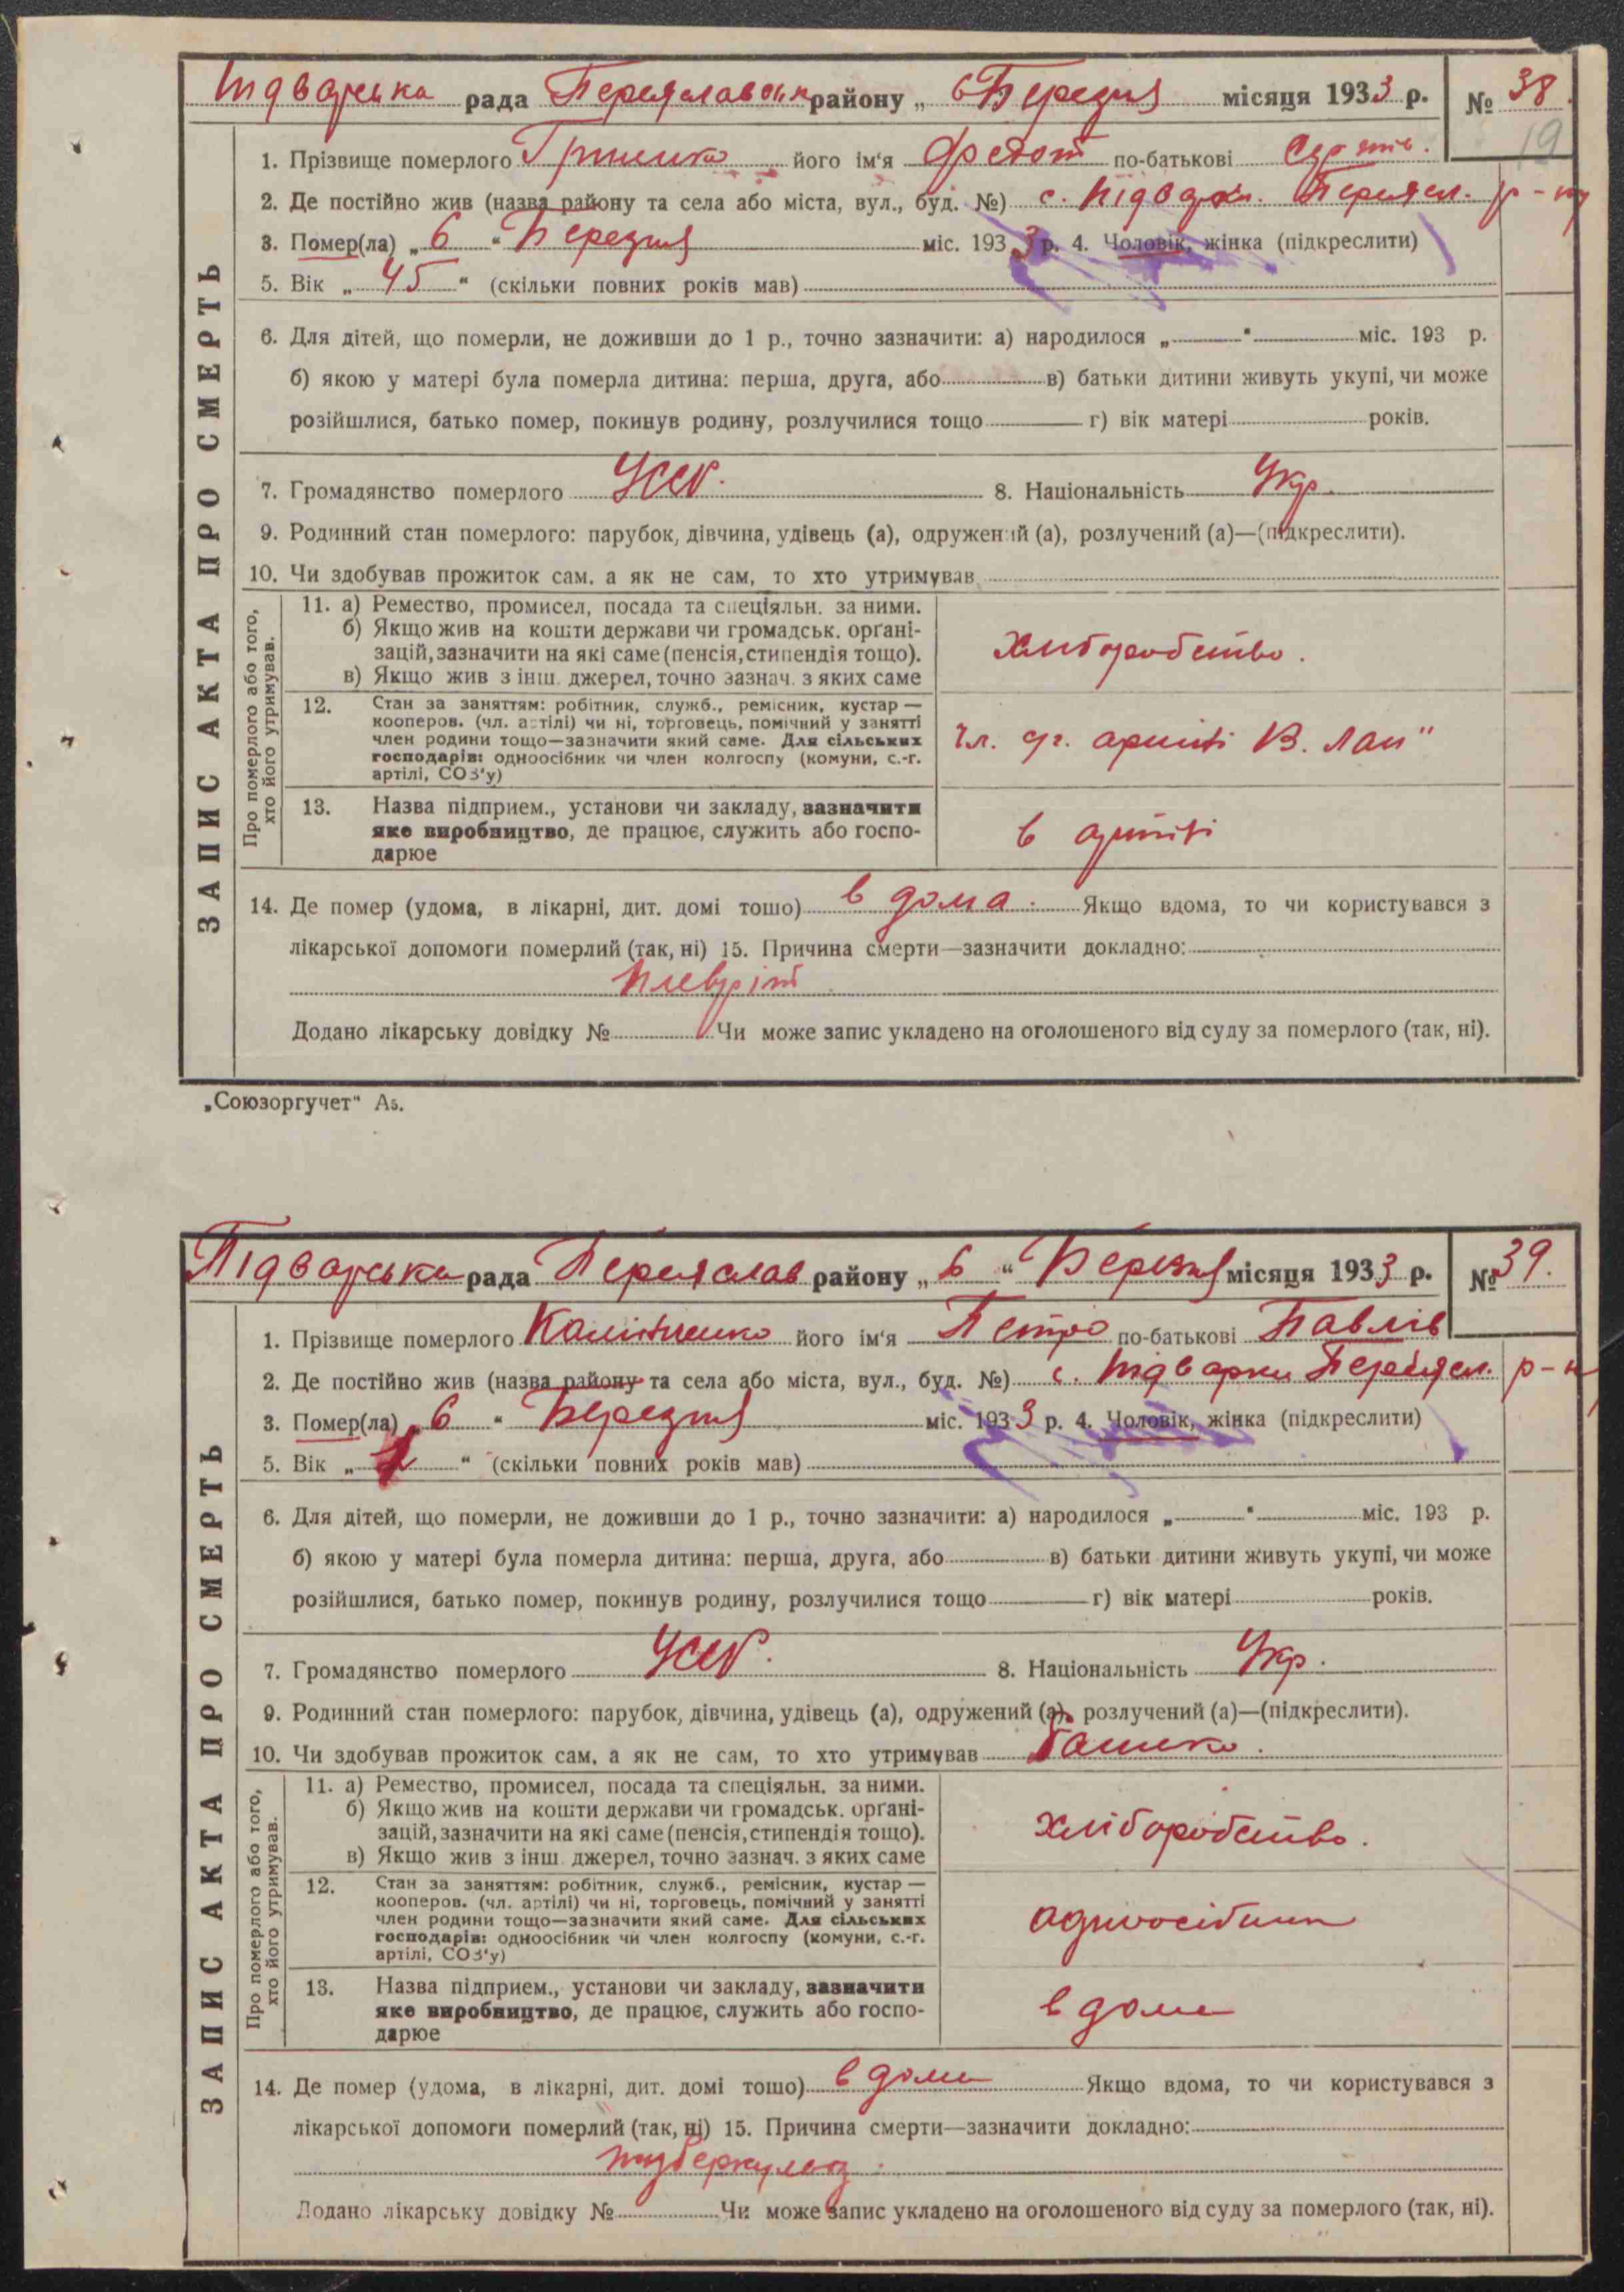 Підварська рада Переяславськ району „ 6 Березня місяця 1933 р. № 38.
19
1. Прізвище померлого його ім‘я Федот по-батькові
2. Де постійно жив (назва району та села або міста, вул., буд. №) с. Підварк. Переясл. р-ну
3. Помер(ла) „ 6 “ Березня міс. 1933 р. 4. Чоловік, жінка (підкреслити)
5. Вік „ 45 “ (скільки повних років мав)
6. Для дітей, що померли, не доживши до 1 р., точно зазначити: а) народилося „ “ міс. 193 р.
б) якою у матері була померла дитина: перша, друга, або в) батьки дитини живуть укупі, чи може
розійшлися, батько помер, покинув родину, розлучилися тощо г) вік матері років.
7. Громадянство померлого УССР. 8. Національність Укр.
9. Родинний стан померлого: парубок, дівчина, удівець (а), одружений (а), розлучений (а)—(підкреслити).
10. Чи здобував прожиток сам, а як не сам, то хто утримував
ЗАПИС АКТА ПРО СМЕРТЬ
Про померлого або того, хто його утримував.
11. а) Ремество, промисел, посада та спеціяльн. за ними.
б) Якщо жив на кошти держави чи громадськ. орґані-
зацій, зазначити на які саме (пенсія, стипендія тощо).
в) Якщо жив з інш. джерел, точно зазнач. з яких саме
Хліборобство.
12. Стан за заняттям: робітник, служб., ремісник, кустар —
кооперов. (чл. артілі) чи ні, торговець, помічний у занятті
член родини тощо—зазначити який саме. Для сільських
господарів: одноосібник чи член колгоспу (комуни, с.-г.
артілі, СОЗ‘у)
чл. артілі
13. Назва підприєм., установи чи закладу, зазначити
яке виробництво, де працює, служить або госпо-
дарює
в артілі
14. Де помер (удома, в лікарні, дит. домі тощо) в дома. Якщо вдома, то чи користувався з
лікарської допомоги померлий (так, ні) 15. Причина смерти—зазначити докладно:
плевріт
Додано лікарську довідку № Чи може запис укладено на оголошеного від суду за померлого (так, ні).
„Союзоргучет“ А5.
Підварська рада Переяслав району „ 6 “ Березня місяця 1933 р. № 39.
1. Прізвище померлого Калініченко його ім‘я Петро по-батькові Павлів
2. Де постійно жив (назва району та села або міста, вул., буд. №) с. Підварки Переясл. р-н
3. Помер(ла) „ 6 “ Березня міс. 1933 р. 4. Чоловік, жінка (підкреслити)
5. Вік „ 1 “ (скільки повних років мав)
6. Для дітей, що померли, не доживши до 1 р., точно зазначити: а) народилося „ “ міс. 193 р.
б) якою у матері була померла дитина: перша, друга, або в) батьки дитини живуть укупі, чи може
розійшлися, батько помер, покинув родину, розлучилися тощо г) вік матері років.
7. Громадянство померлого УССР. 8. Національність Укр.
9. Родинний стан померлого: парубок, дівчина, удівець (а), одружений (а), розлучений (а)—(підкреслити).
10. Чи здобував прожиток сам, а як не сам, то хто утримував Батько.
ЗАПИС АКТА ПРО СМЕРТЬ
Про померлого або того, хто його утримував.
11. а) Ремество, промисел, посада та спеціяльн. за ними.
б) Якщо жив на кошти держави чи громадськ. орґані-
зацій, зазначити на які саме (пенсія, стипендія тощо).
в) Якщо жив з інш. джерел, точно зазнач. з яких саме
Хліборобство.
12. Стан за заняттям: робітник, служб., ремісник, кустар —
кооперов. (чл. артілі) чи ні, торговець, помічний у занятті
член родини тощо—зазначити який саме. Для сільських
господарів: одноосібник чи член колгоспу (комуни, с.-г.
артілі, СОЗ‘у)
одноосібник
13. Назва підприєм., установи чи закладу, зазначити
яке виробництво, де працює, служить або госпо-
дарює
в дома
14. Де помер (удома, в лікарні, дит. домі тощо) в дома Якщо вдома, то чи користувався з
лікарської допомоги померлий (так, ні) 15. Причина смерти—зазначити докладно:
туберкулоз.
Додано лікарську довідку № Чи може запис укладено на оголошеного від суду за померлого (так, ні).